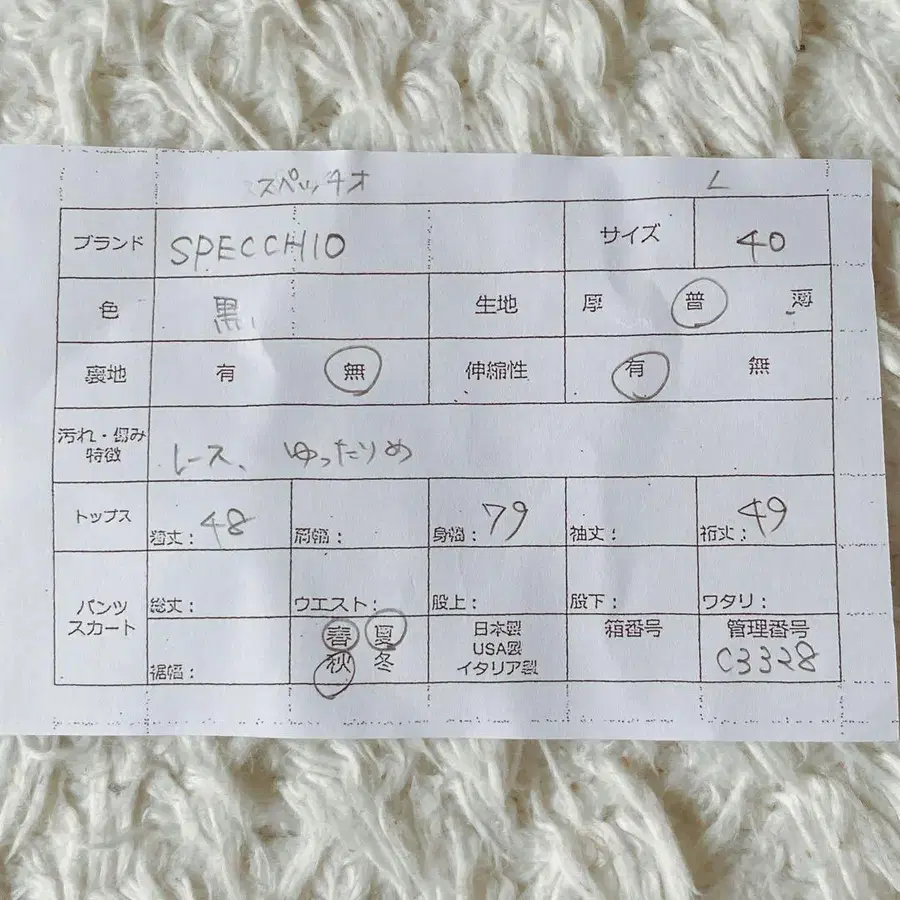 スペッチオ L
ブランド SPECCHIO サイズ 40
色 黒 生地 厚 普 薄
裏地 有 無 伸縮性 有 無
汚れ・傷み
特徴 レース、ゆったりめ
トップス 着丈：48 肩幅： 身幅：79 裄丈：49 袖丈：
パンツ
スカート 総丈： ウエスト： 股上： 股下： ワタリ：
裾幅： 春 夏 日本製 箱番号 管理番号
秋 冬 USA製 C3328
イタリア製